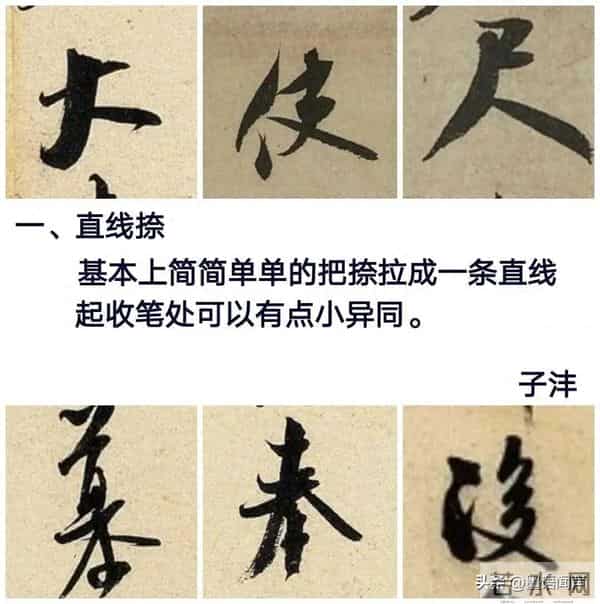 大 使 尺
一、直线捺
基本上简简单单的把捺拉成一条直线
起收笔处可以有点小异同。
子沣
暮 奉 没